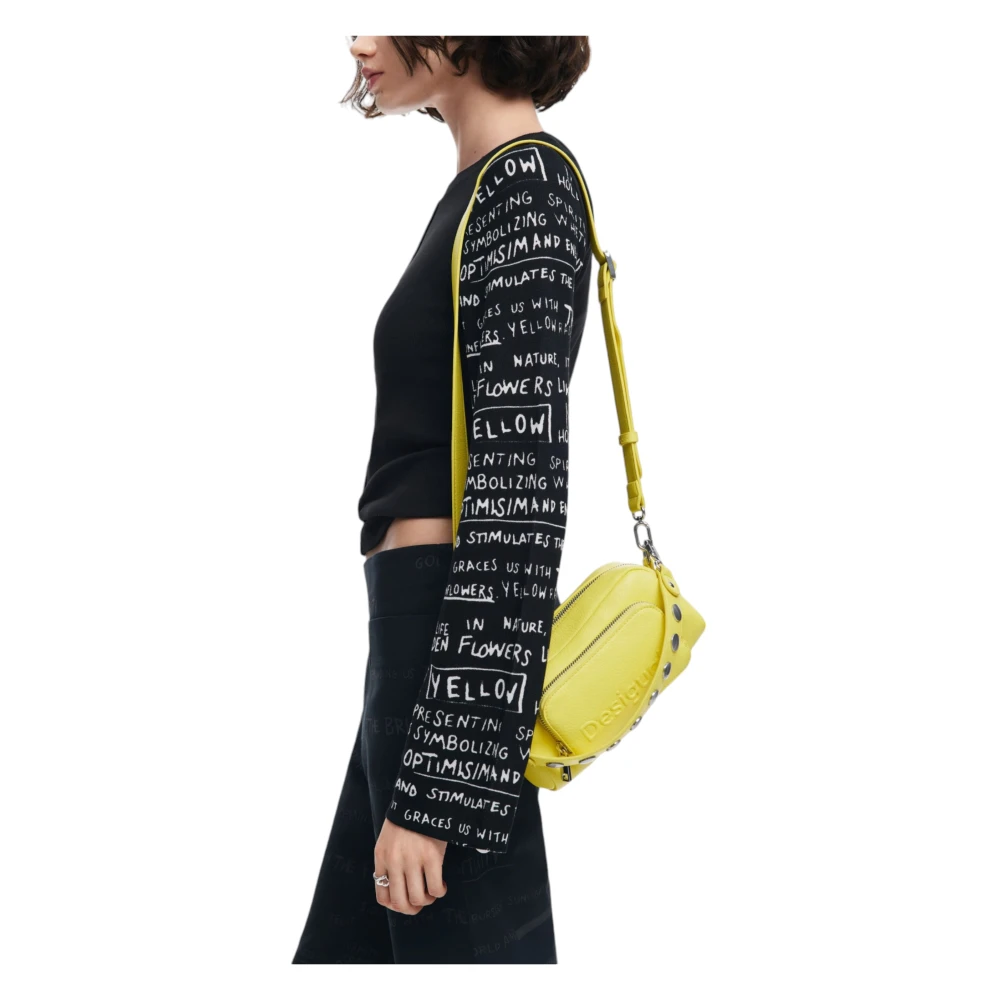 ELLOW
HOL
ESENTING SPIRIT
SYMBOLIZING WHET
OPTIMISIMAND EN
AND STIMULATES THE
GRACES US WITH T
ERS. YELLOW
IN NATURE,
FLOWERS LI
ELLOW
HO
SENTING SPI
MBOLIZING W
TIMISIMAND EN
STIMULATES TH
GRACES US WITH
FLOWERS. YELLOW F
LIFE IN NATURE,
DEN FLOWERS L
YELLOW
PRESENTIN SP
SYMBOLIZING W
OPTIMISIMAND
AND STIMULATES
IT GRACES US WITH
Desigu